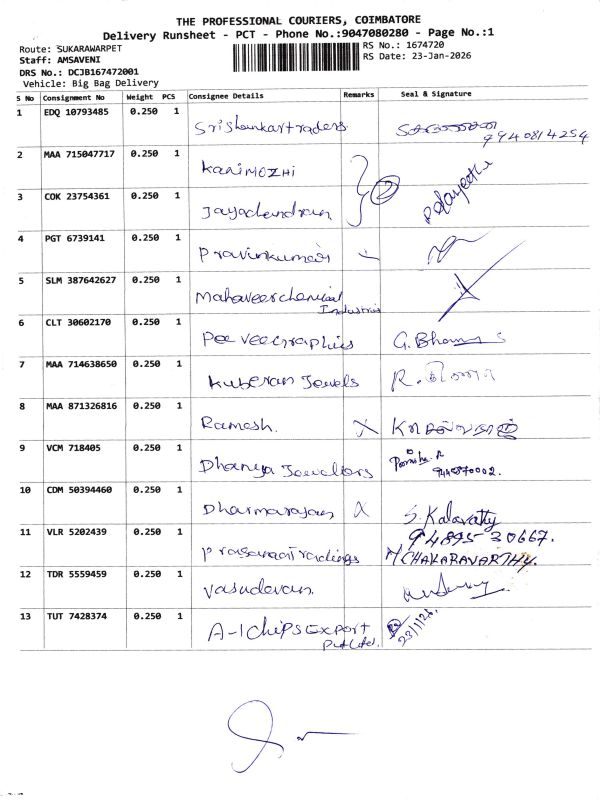 THE PROFESSIONAL COURIERS, COIMBATORE
Delivery Runsheet - PCT - Phone No.:9047080280 - Page No.:1
Route: SUKARAWARPET
RS No.: 1674720
Staff: AMSAVENI
RS Date: 23-Jan-2026
DRS No.: DCJB167472001
Vehicle: Big Bag Delivery
S No Consignment No Weight PCS Consignee Details Remarks Seal & Signature
1 EDQ 10793485 0.250 1 Srishankartraders 9940814254
2 MAA 715047717 0.250 1 Kanimozhi
3 COK 23754361 0.250 1 Jayachendran 2
4 PGT 6739141 0.250 1 Pravinkumar
5 SLM 387642627 0.250 1 Mahaveerchemical
Industries
6 CLT 30602170 0.250 1 Pee Vee graphics G. Bhanu
7 MAA 714638650 0.250 1 Kuberan Jewels R.
8 MAA 871326816 0.250 1 Ramesh. X
9 VCM 718405 0.250 1 Dhanya Jewellers
10 CDM 50394460 0.250 1 Dharmarajan X S. Kalavathy
94895 30667.
11 VLR 5202439 0.250 1 Prasannatradings M CHAKARAVARTHY.
12 TDR 5559459 0.250 1 Vasudevan.
13 TUT 7428374 0.250 1 A-1 Chips Export
Pvt Ltd. 23/1/26